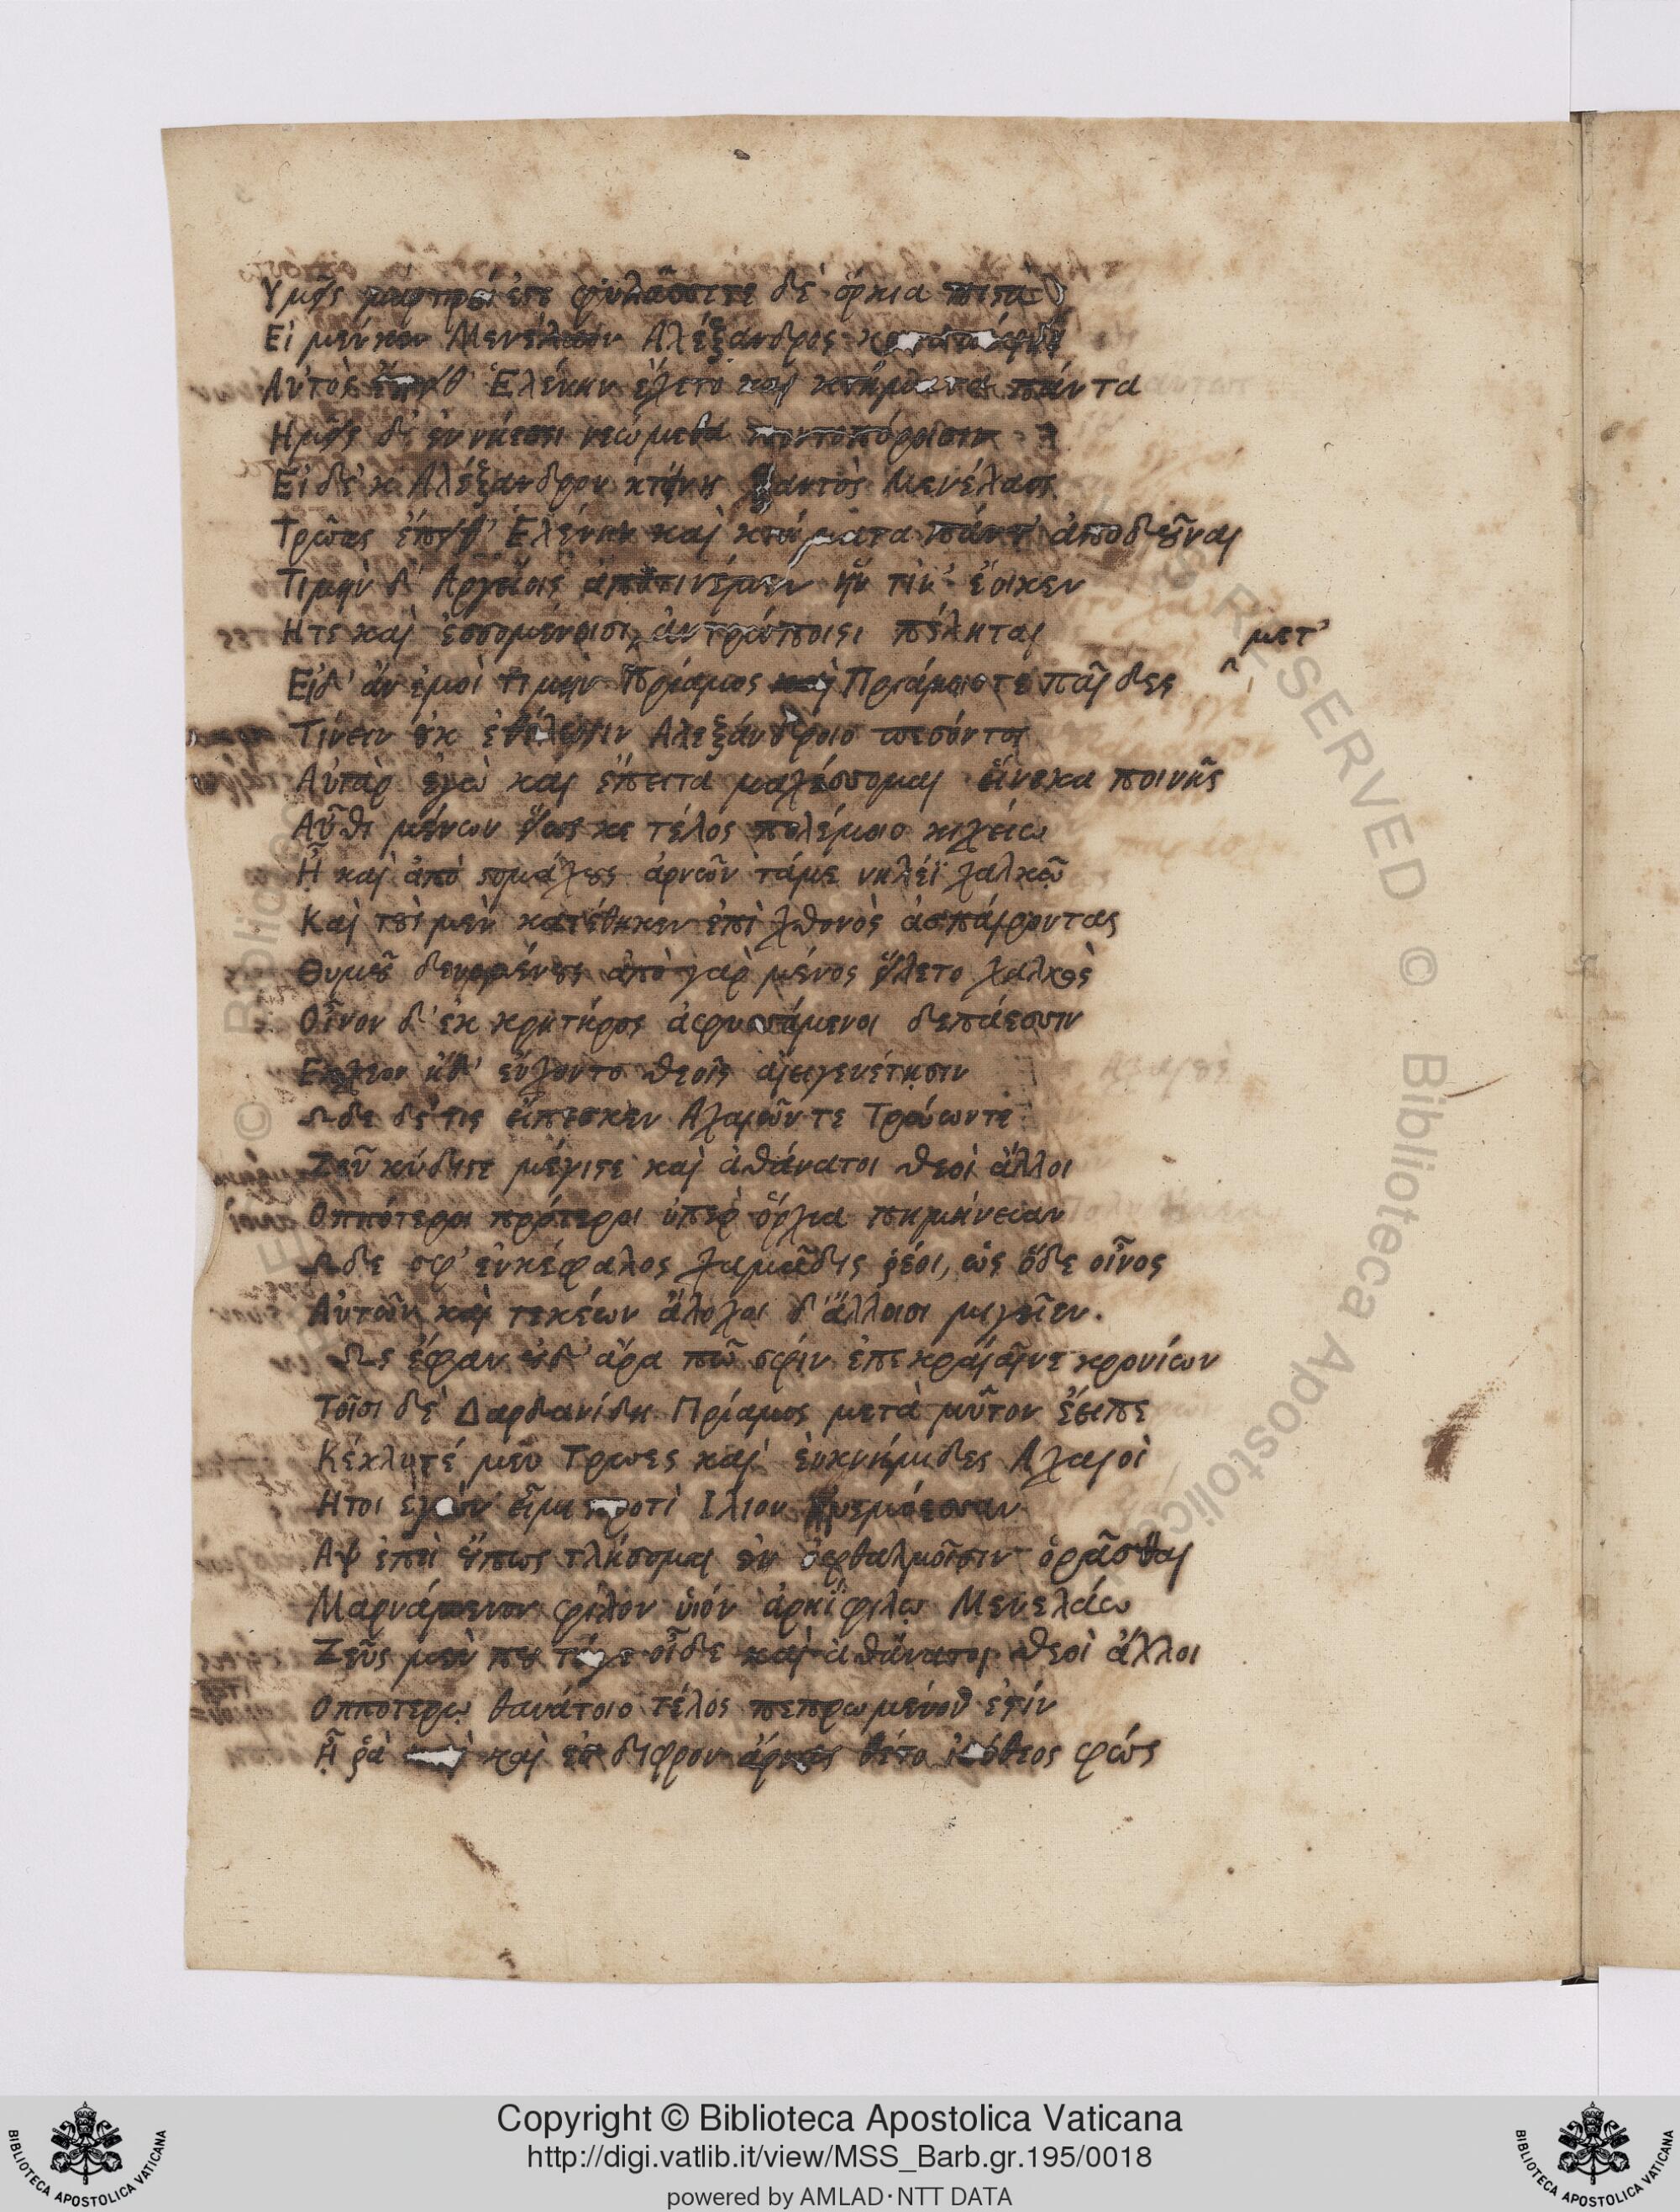 Υμεῖς μάρτυροι ἐστε φυλάσσετε δὲ ὅρκια πιστὰ
Εἰ μέν κεν Μενέλαον Αλέξανδρος
Αὐτὸς ἔπειθ' Ἑλένην ἐχέτω καὶ κτήματα πάντα
Ημεῖς δ' ἐν νήεσσι νεώμεθα ποντοπόροισιν
Εἰ δέ κ' Αλέξανδρον κτείνῃ ξανθὸς Μενέλαος
Τρῶας ἔπειθ' Ἑλένην καὶ κτήματα πάντ' ἀποδοῦναι
Τιμὴν δ' Αργείοις ἀποτινέμεν ἥν τιν' ἔοικεν
Ητε καὶ ἐσσομένοισι ἀντρώποισι πέληται
μετ'
Εἰ δ' ἂν ἐμοὶ τιμὴν Πρίαμος Πριάμοιό τε παῖδες
Τίνειν οὐκ ἐθέλωσιν Αλεξάνδροιο πεσόντος
Αὐτὰρ ἐγὼ καὶ ἔπειτα μαχέσσομαι εἵνεκα ποινῆς
Αὖθι μένων εἵως κε τέλος πολέμοιο κιχείω
Ἦ καὶ ἀπὸ στομάχους ἀρνῶν τάμε νηλέϊ χαλκῷ
Καὶ τοὺς μὲν κατέθηκεν ἐπὶ χθονὸς ἀσπαίροντας
Θυμοῦ δευομένους ἀπὸ γὰρ μένος εἵλετο χαλκὸς
Οἶνον δ' ἐκ κρητῆρος ἀφυσσάμενοι δεπάεσσιν
Εκχεον ἠδ' εὔχοντο θεοῖς αἰειγενέτῃσιν
Ωδε δέ τις εἴπεσκεν Αχαιῶν τε Τρώων τε
Ζεῦ κύδιστε μέγιστε καὶ ἀθάνατοι θεοὶ ἄλλοι
Οππότεροι πρότεροι ὑπὲρ ὅρχια πημήνειαν
Ωδε σφ' ἐνκέφαλος χαμᾶδις ῥέοι, ὡς ὅδε οἶνος
Αὐτῶν καὶ τεκέων ἄλοχοι δ' ἄλλοισι μιγεῖεν.
Ως ἔφαν οὐδ' ἄρα πῶ σφίν ἐπεκραίαινε κρονίων
Τοῖσι δὲ Δαρδανίδη Πρίαμος μετὰ μῦτον ἔειπε
Κέκλυτέ μευ Τρωες καὶ ἐυκνήμιδες Αχαιοὶ
Ητοι ἐγὼν εἶμι προτὶ Ιλιον ἠνεμόεσσαν
Αψ ἐπεὶ οὔπως τλήσομαι ἐν ὀφθαλμοῖσιν ὁρᾶσθαι
Μαρνάμενον φίλον υἱόν ἀρηϊφιλῳ Μενελάῳ
Ζεῦς μέν που τόγε οἶδε καὶ ἀθάνατοι θεοὶ ἄλλοι
Οπποτερῳ θανάτοιο τέλος πεπρωμένον ἐστίν
Ἦ ῥὰ καὶ ἐς διφρον ἄρνας θέτο ἰσόθεος φώς
Copyright © Biblioteca Apostolica Vaticana
http://digi.vatlib.it/view/MSS_Barb.gr.195/0018
powered by AMLAD·NTT DATA
BIBLIOTECA APOSTOLICA VATICANA
BIBLIOTECA APOSTOLICA VATICANA